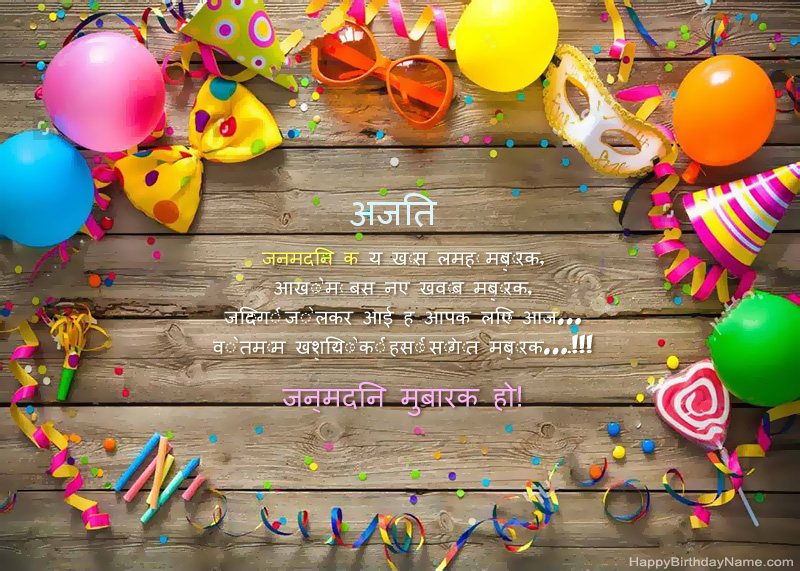 अजति
जनमदनि क य खास लमह मबारक,
आखों म बस नए खवाब मबारक,
जदिगी जो लेकर आई ह आपक लएि आज...
वो तमाम खशयिों की हसीं सौगात मबारक...!!!
जन्मदनि मुबारक हो!
HappyBirthdayName.com